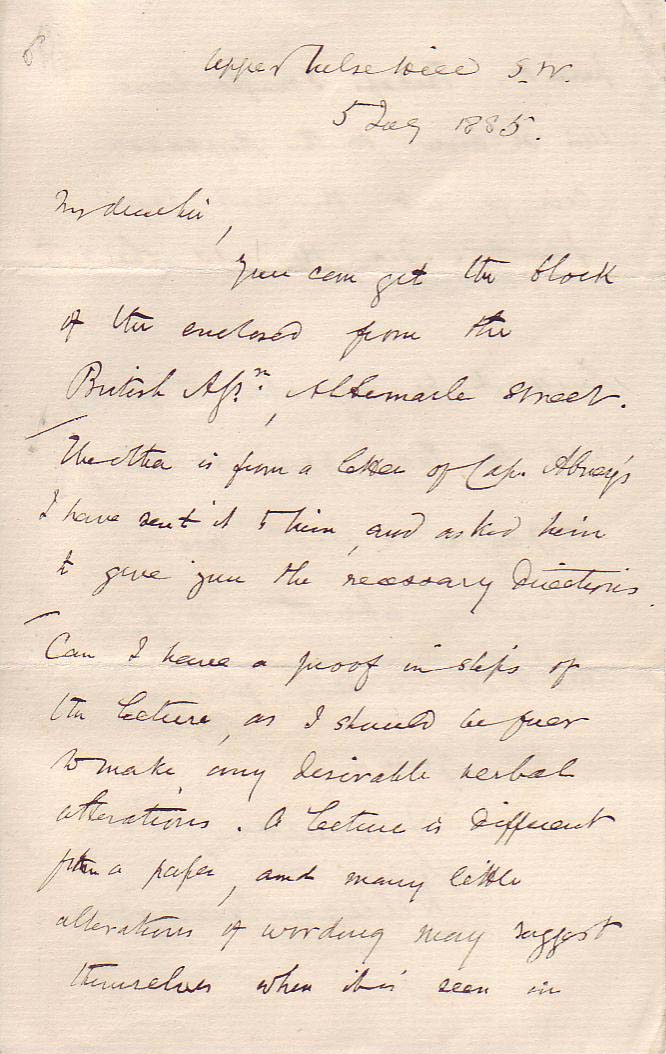 Upper Tulse Hill S.W.
5 July 1885.
My dear Sir,
You can get the block
of the enclosed from the
British Assn, Albemarle Street.
The other is from a letter of Cap. Abney's
I have sent it to him, and asked him
to give you the necessary directions.
Can I have a proof in slips of
the lecture, as I should be free
to make any desirable verbal
alterations. A lecture is different
from a paper, and many little
alterations of wording may suggest
themselves when it is seen in